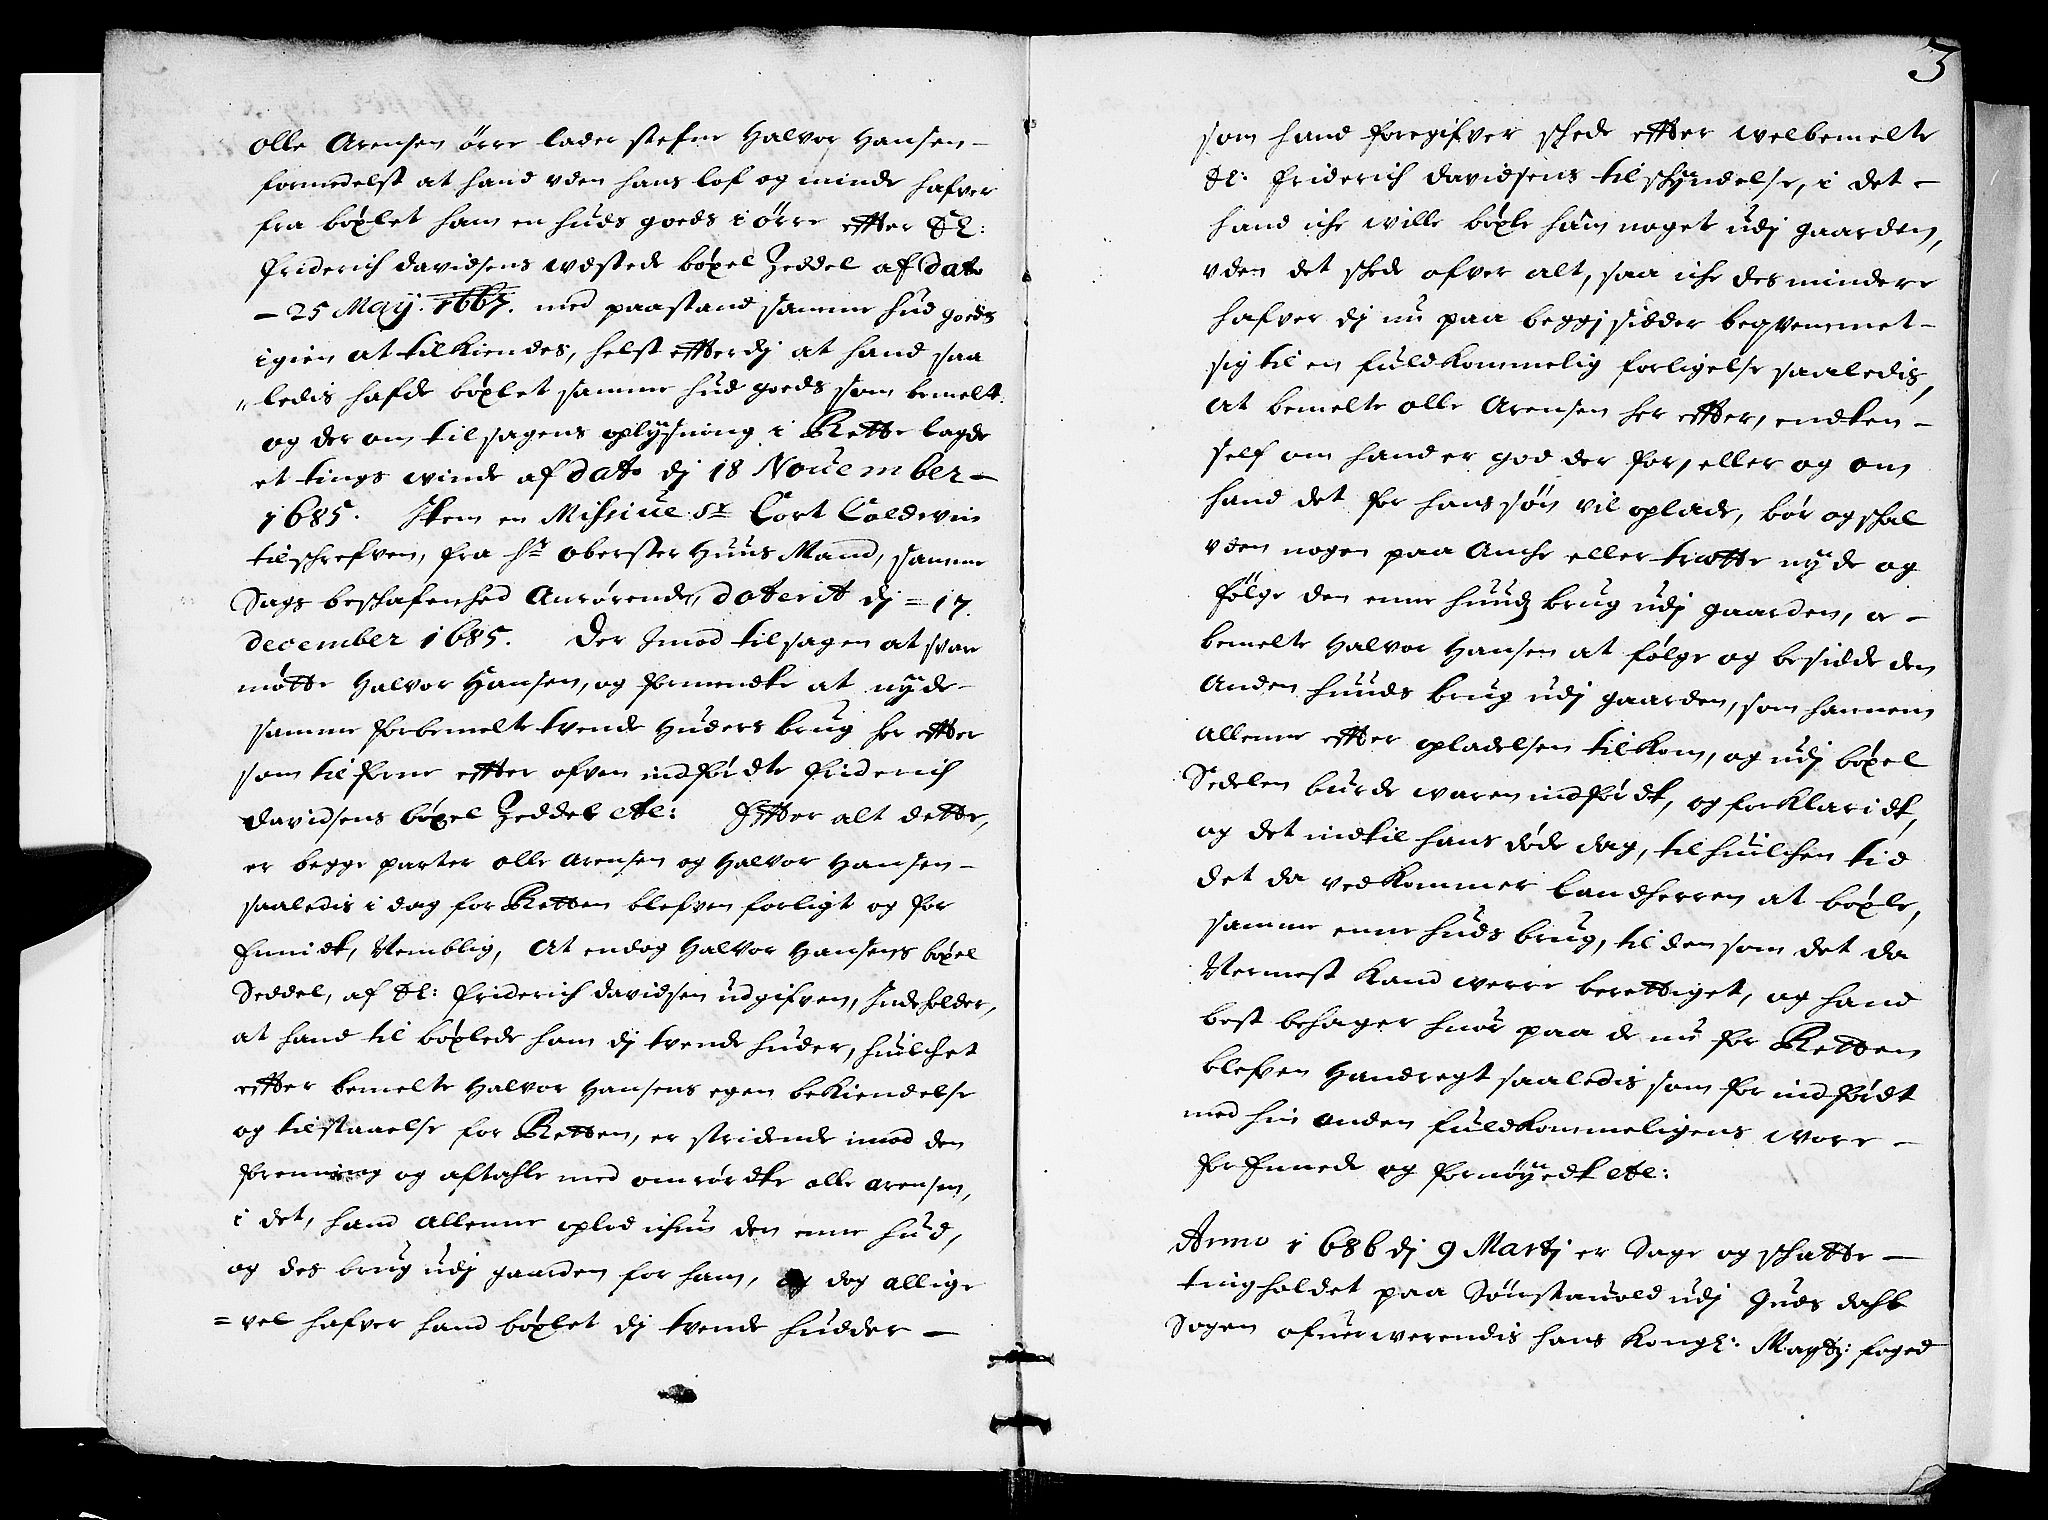 olle Arensen örre lader stefne Halvor Hansen –
formedelst at hand uden hans lof og minde hafver
fra böxlet ham en huds goeds i örre effter Sl:
Friderich Davidsens udstede böxel Zeddel af dato
– 25 May. 1667. med paastand samme hud goeds
igien at tilkiendes, helst effterdj at hand saa
„ ledis hafde böxlet samme hud goeds som bemelt.
og der om til sagens oplÿsning i Rette lagde
et tings winde af dato dj 18 Nouember –
1685. Item en Missiue Sr Cort Coldevin
tilschrefven, fra Hr oberster Huus Mand, samme
Sags beschafenhed Anrörende, daterit dj = 17.
december 1685. Der Imod til sagen at svare
mötte Halvor Hansen, og formendte at nÿde –
samme forbemelte tvende Huders brug her effter
som til forne effter ofven indfördte Friderich
Davidsens böxel Zeddel etc: Effter alt dette,
er begge parter olle Arensen og Halvor Hansen –
saaledis i dag for Retten blefven forligt og for
Eenidt, Nemblig, At endog Halvor Hansens böxel
Seddel, af Sl: Friderich Davidsen udgifven, Indeholder,
at hand til böxlede ham dj tvende huder, huilchet
effter bemelte Halvor Hansens egen bekiendelse
og tilstaaelse for Retten, er stridende imod den
forening og aftahle med omrördte olle Arensen,
i det, hand allenne oplod ichun den enne hud,
og des brug udj gaarden for ham, og dog allige
= vel hafver hand böxlet dj tvende hudder –
3
som hand foregifver schede effter welbemelte
Sl: Friderich Davidsens tilschÿndelse, i det –
hand iche wille böxle ham noget udj gaarden,
uden det schede ofver alt, saa iche des mindere
hafver dj nu paa beggj sidder beqvemmet –
sig til en fuldkommelig forligelse saaledis,
At bemelte olle Arensen her effter, endten –
self om hand er god der for, eller og om
hand det for hans sön vil oplade, bör og schal
uden nogen paa Anche eller trætte nÿde og
fölge den enne huuds brug udj gaarden, och –
bemelte Halvor Hansen at fölge og besidde den
Anden huuds brug udj gaarden, som hannem
allenne effter opladelsen tilkom, og udj böxel
Sedelen burde waren indfördt, og forklaridt,
og det indtil hans döde dag, til huilchen tid
det da vedkommer Landherren at böxle,
samme enne huds brug, til den som det da
Nermest kand were berettiget, og hand
best behager huor paa de nu for Retten
blefven Handregt saaledis som for indfördt
med hin anden fuldkommeligens wore –
forEenede og fornöÿedt etc:
Anno 1686 dj 9 Martj er Sage og schatte –
ting holdet paa Sönstauold udj Guds dahl
Sogen ofuerwerendis hans Kongl: Maÿtz: foged